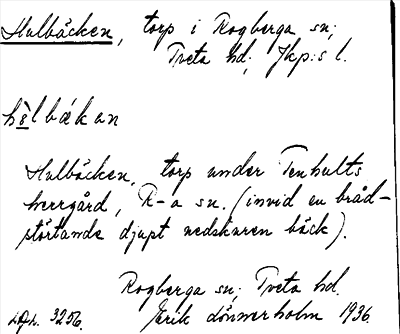 Hulbäcken, torp i Rogberga sn;
Tveta hd; Jkp:s l.
hòlbäkan
Hulbäcken, torp under Tenhults
herrgård, R-a sn. (invid en bråd-
störtande djupt nedskuren bäck).
Rogberga sn; Tveta hd.
Erik Lönnerholm 1936.
3256.